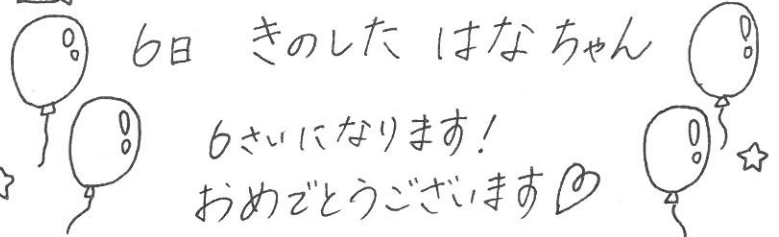 6日 きのした はなちゃん
6さいになります!
おめでとうございます♡